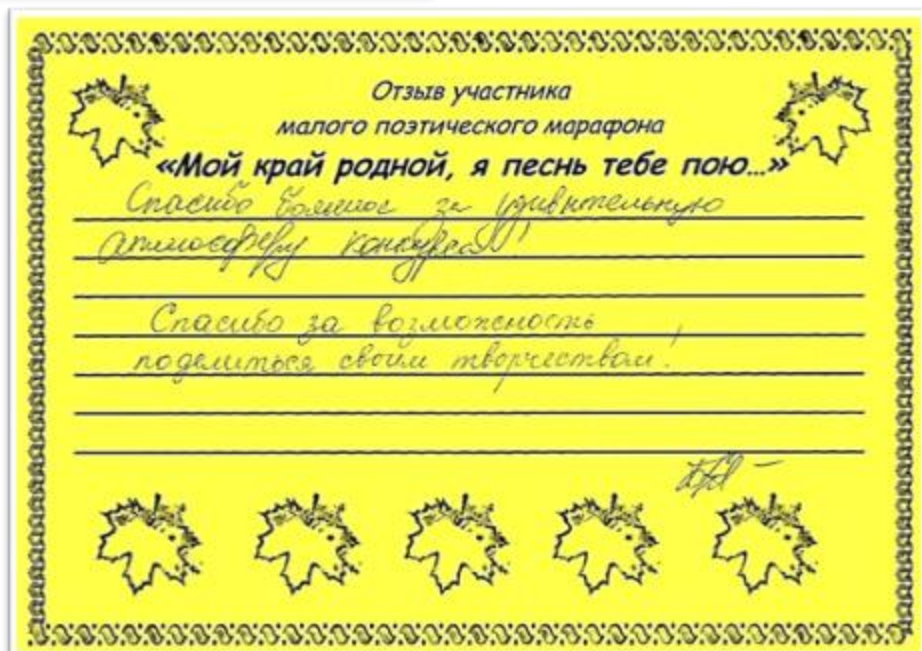 Отзыв участника
малого поэтического марафона
«Мой край родной, я песнь тебе пою...»
Спасибо большое за удивительную
атмосферу конкурса!
Спасибо за возможность
поделиться своим творчеством!